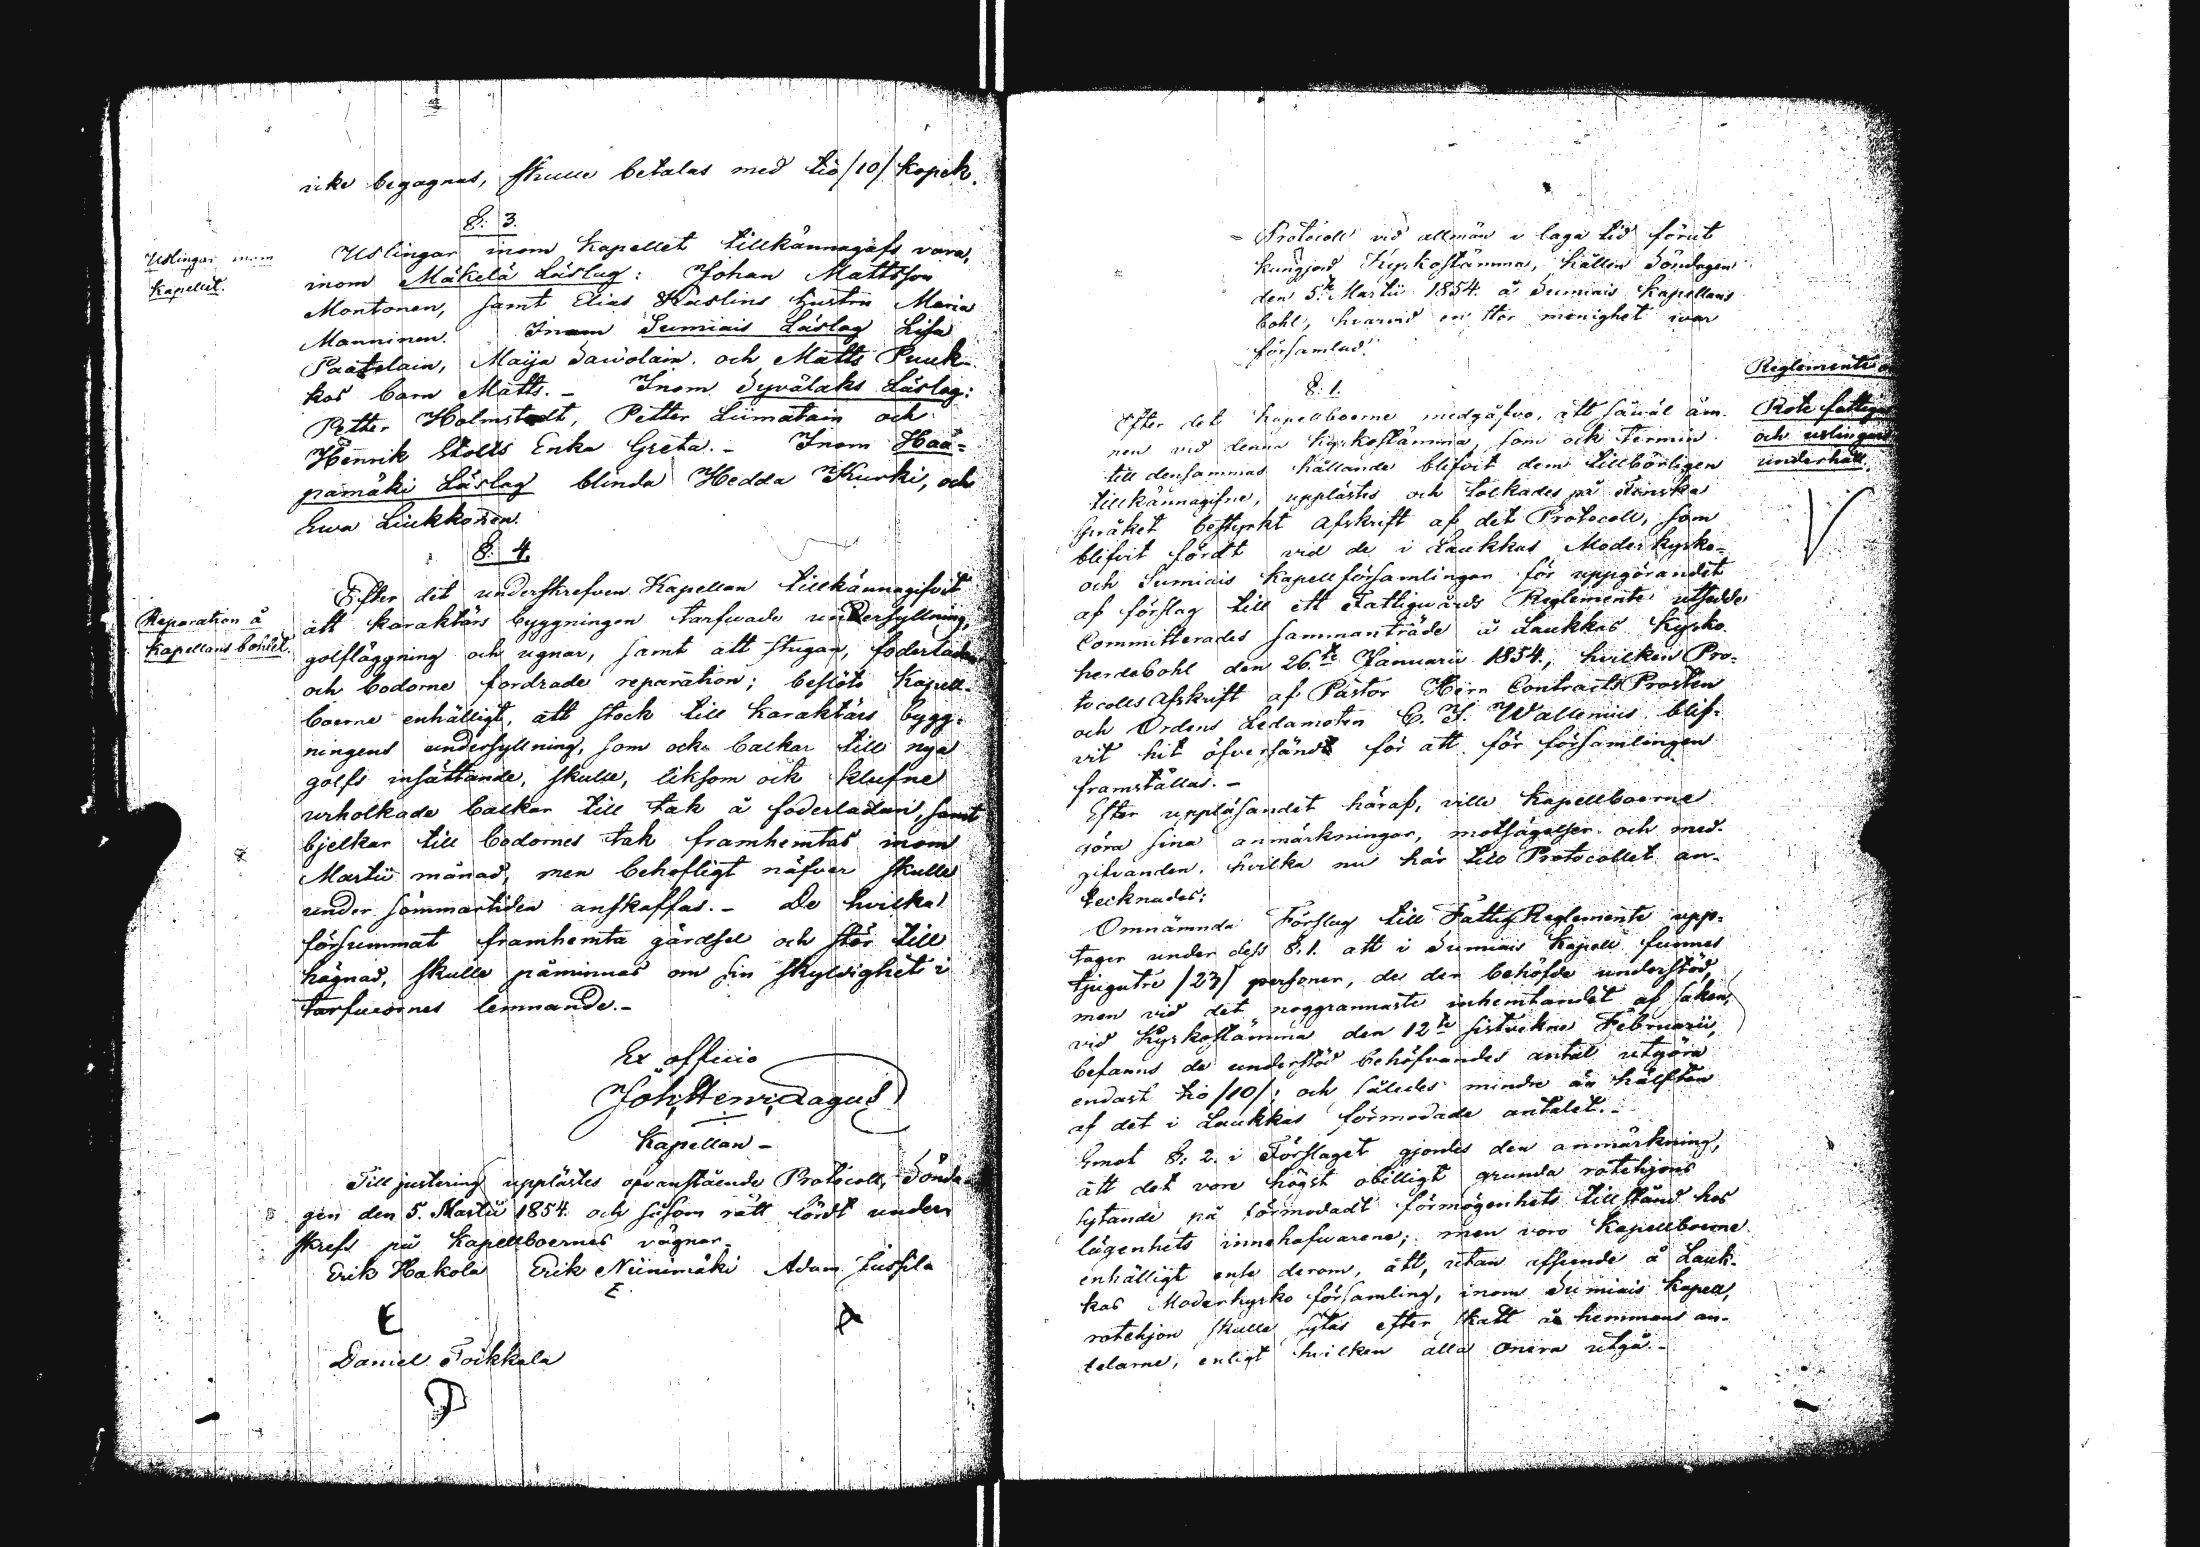 icke begagnas, skulle betalas med tio /10/ kopek.
§. 3.
Uslingar inom
Kapellet.
Uslingar inom Kapellet tillkännagafs vara,
inom Mäkelä Läslag: Johan Mattsson
Montonen, samt Elias Kuslins hustru Maria
Manninen. Inom Sumiais Läslag Lisa
Paatelain, Maija Sawolain. och Matts Puuk-
kos barn Matts. - Inom Syvälaks Läslag:
Petter Holmstedt, Petter Liimatain och
Hennrik Stolts Enka Greta. - Inom Haa-
pamäki Läslag blinda Hedda Kurki, och
Ewa Liukkonen.
§. 4.
Reparation å
Kapellans bohlet.
Efter det underskrefven Kapellan tillkännagifvit
att karaktärs byggningen tarfwade undersyllning,
golfläggning och ugnar, samt att stugan, foderladan
och bodorne fordrade reparation; beslöto Kapell-
boerne enhälligt, att stock till karaktärs bygg-
ningens undersyllning, som ock balkar till nya
golfs insättande, skulle, liksom ock klufne
urholkade balkar till tak å foderladan, samt
bjelkar till bodornes tak framhemtas inom
Martii månad, men behöfligt näfver skulle
under sommartiden anskaffas. - De hvilka
försummat framhemta gärdsel och stör till
hägnad, skulle påminnas om sin skyldighet i
tarfwornes lemnande. -
Ex officio
Joh. Henr. Dagus
Kapellan -
Till justering upplästes ofvanstående Protocoll, Sönda-
gen den 5. Martii 1854. och såsom rätt fördt under-
skrefs på Kapellboernes vägnar.
Erik Hakola Erik Niinimäki Adam Jussila
E
E
A
Daniel Toikkala
D
Protocoll vid allmän i laga tid förut
kungjord Kyrkostämma, hållen Söndagen
den 5.te Martii 1854. å Sumiais Kapellans
bohl, hvarvid en stor menighet war
församlad.
§. 1.
Reglemente
Rote fattigas
och uslingars
underhåll.
Efter det Kapellboerne medgåfvo, att såväl äm-
nen vid denna kyrkostämma, som ock Termin
till densammas hållande blifvit dem tillbörligen
tillkännagifne, upplästes och tolkades på Finska
språket bestyrkt afskrift af det Protocoll, som
blifvit fördt vid de i Laukkas Moderkyrko-
och Sumiais Kapellförsamlingar för uppgörandet
af förslag till ett Fattigwårds Reglemente utsedde
Committerades sammanträde å Laukkas Kyrko-
herdebohl den 26.te Januarii 1854., hvilken Pro-
tocolls afskrift af Pastor Herr Contracts Prosten
och Ordens Ledamoten C. J. Wallenius blif-
vit hit öfversändt för att för församlingen
framställas. -
Efter uppläsandet häraf, ville Kapellboerne
göra sina anmärkningar, motsägelser och med-
gifvanden, hvilka nu här till Protocollet an-
tecknades:
Omnämnda Förslag till Fattig Reglemente upp-
tager under dess §. 1. att i Sumiais Kapell funnes
tjugutre /23/ personer, de der behöfde understöd,
men vid det noggrannaste inhemtandet af saken,
vid Kyrkostämma den 12te sistvekne Februarii,
befanns de understöd behöfvandes antal utgöra
endast tio /10/; och således mindre än hälften
af det i Laukkas förmodade antalet. -
Emot §. 2. i Förslaget gjordes den anmärkning,
att det vore högst obilligt grunda rotehjons
sytande på förmodadt förmögenhets tillstånd hos
lägenhets innehafwarena; men voro Kapellboerne
enhälligt ense derom, att, utan afseende å Lauk-
kas Moderkyrko församling, inom Sumiais Kapell,
rotehjon skulle sytas efter skatt å hemmans an-
delarne, enligt hvilken alla onera utgå. -